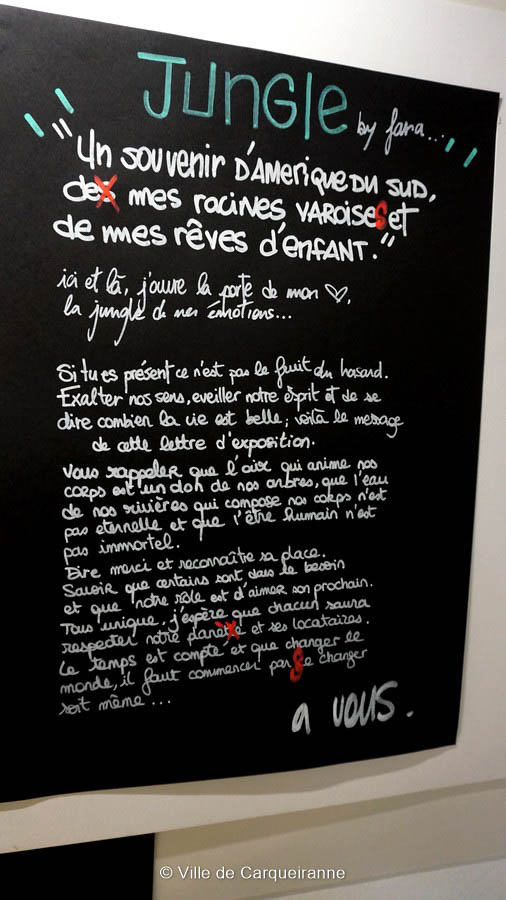 JUNGLE by fara...
"Un souvenir D'AMERIQUE DU SUD,
deX mes racines VAROISES et
de mes rêves d'enfANT."
ici et là, j'ouvre la porte de mon ♡,
la jungle de mes émotions...
Si tu es présent ce n'est pas le fruit du hasard.
Exalter nos sens, eveiller notre esprit et de se
dire combien la vie est belle, voilà le message
de cette lettre d'exposition.
Vous rappeler que l'air qui anime nos
corps est un don de nos arbres, que l'eau
de nos rivières qui compose nos corps n'est
pas eternelle et que l'être humain n'est
pas immortel.
Dire merci et reconnaître sa place.
Savoir que certains sont dans le besoin
et que notre rôle est d'aimer son prochain.
Tous unique, j'espère que chacun saura
respecter notre planète et ses locataires.
Le temps est compté et que changer le
monde, il faut commencer par Se changer
soit même...
A VOUS.
© Ville de Carqueiranne